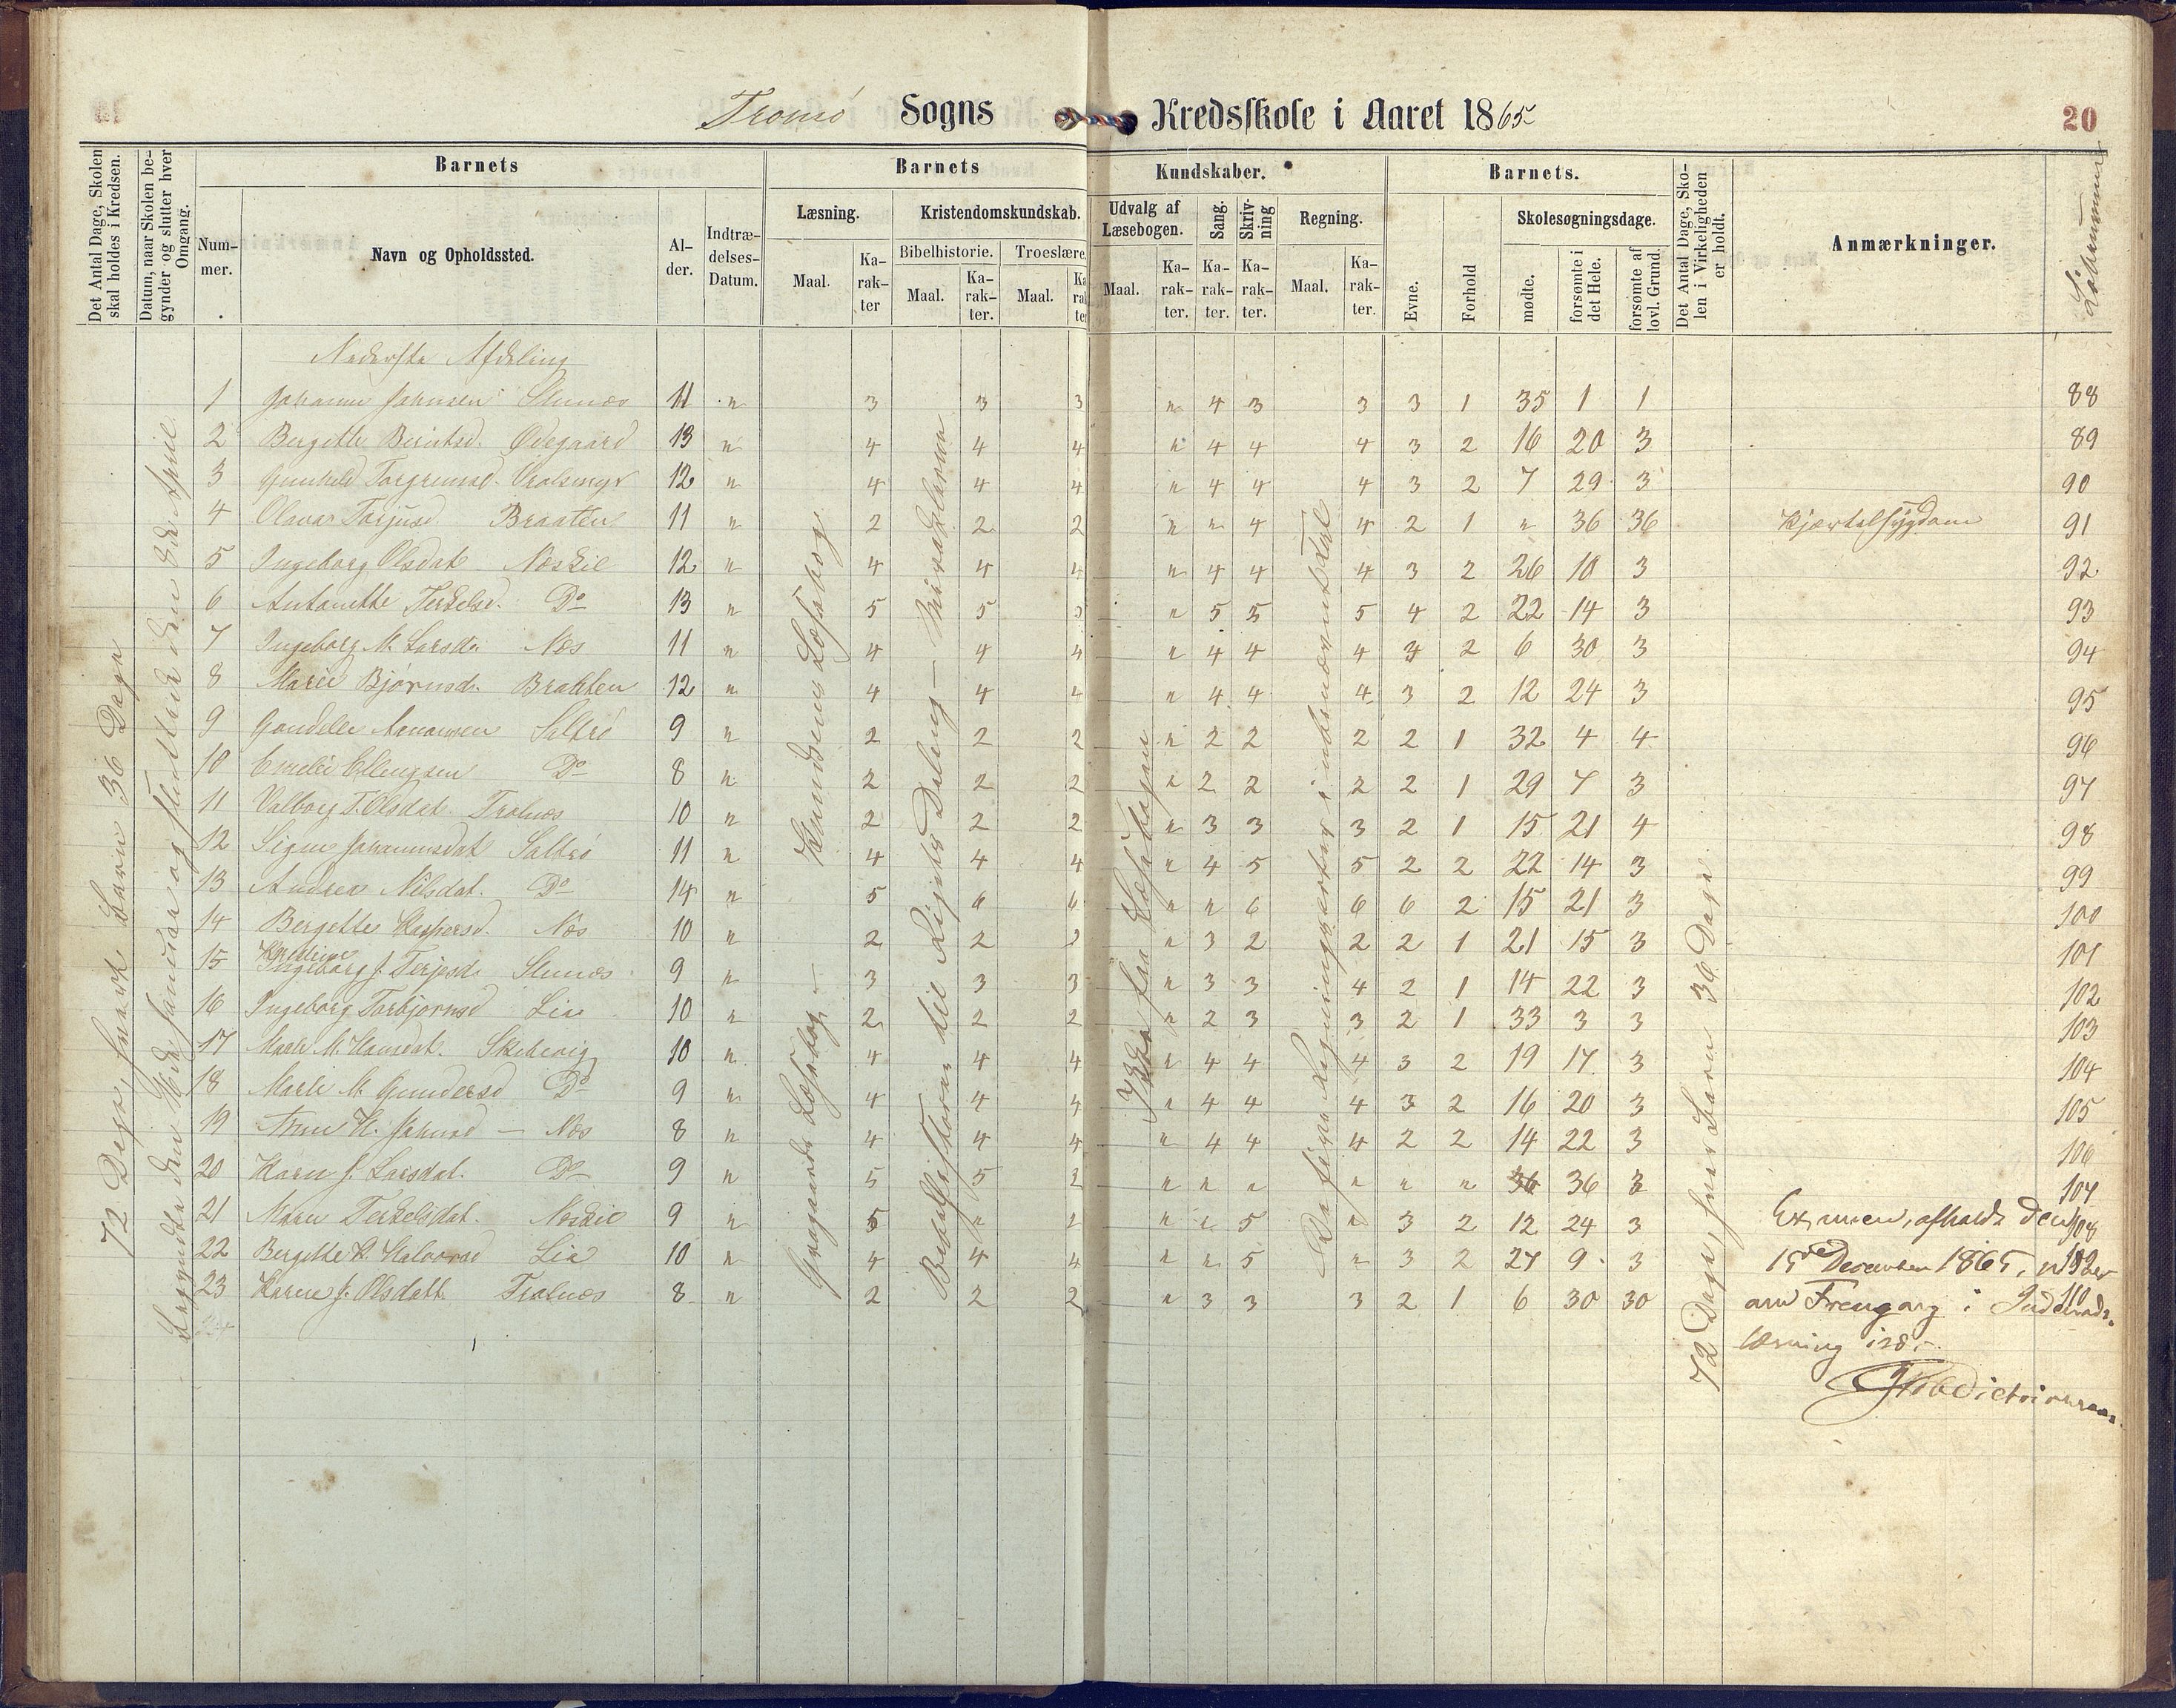 Tromsø Sogns Kredsskole i Aaret 1865 20
Det Antal Dage, Skolen skal holdes i Kredsen.
Datum, naar Skolen begynder og slutter hver Omgang.
Barnets
Nummer.
Navn og Opholdssted.
Alder.
Indtrædelses-Datum.
Barnets Kundskaber.
Læsning.
Maal. Karakter
Kristendomskundskab.
Bibelhistorie. Maal. Karakter.
Troeslære. Maal. Karakter
Udvalg af Læsebogen. Maal. Karakter.
Sang. Karakter.
Skrivning Karakter.
Regning. Maal. Karakter.
Barnets.
Evne. Forhold
Skolesøgningsdage.
mødte. forsømte i det Hele. forsømte af lovl. Grund.
Det Antal Dage, Skolen i Virkeligheden er holdt.
Anmærkninger.
Løbenummer
Nederste Afdeling
1 Johanne Johnsen 11 " 3 3 3 " 4 3 3 3 1 35 1 1 88
2 Bergitte Berntsd. Ødegaard 13 " 4 4 4 " 4 4 4 3 2 16 20 3 89
3 Gunhild Torgrimsd. 12 " 4 4 4 " 4 4 4 3 2 7 29 3 90
4 Olava Torjusd. Braaten 11 " 2 2 2 " " 4 4 2 1 " 36 36 Kjærtelsygdom 91
5 Ingeborg Olsdat. Næskil 12 " 4 4 4 " 4 4 4 3 2 26 10 3 92
6 Antonette Terkelsd. Do 13 " 5 5 5 " 5 5 5 4 2 22 14 3 93
7 Ingeborg M. Larsd. Næs 11 " 4 4 4 " 4 4 4 3 2 6 30 3 94
8 Maren Bjørnsd. Braaten 12 " 4 4 4 " 4 4 4 3 2 12 24 3 95
9 Gondele Aanonsen Saltrø 9 " 2 2 2 " 2 2 2 2 1 32 4 4 96
10 Emelie Ellingsen Do 8 " 2 2 2 " 2 2 2 2 1 29 7 3 97
11 Valborg T. Olsdat. Tralnæs 10 " 2 2 2 " 3 3 3 2 1 15 21 4 98
12 Signe Johannsdat. Saltrø 11 " 4 4 4 " 4 5 5 2 2 22 14 3 99
13 Andrea Nilsdat. Do 14 " 5 6 6 " " 6 6 6 2 15 21 3 100
14 Bergitte Kaspersd. Næs 10 " 2 2 2 " 3 2 2 2 1 21 15 3 101
15 Ingeborg J. Terjesd. 9 " 3 3 3 " 3 3 4 2 1 14 22 3 102
16 Ingeborg Torbjørnsd. Lia 10 " 2 2 2 " 2 3 3 2 1 33 3 3 103
17 Maren M. Hansdat. Skibevig 10 " 4 4 4 " 4 4 4 3 2 19 17 3 104
18 Maren M. Gundersd. Do 9 " 4 4 4 " 4 4 4 3 2 16 20 3 105
19 Anne H. Johnsd. — Næs 8 " 4 4 4 " 4 4 4 2 2 14 22 3 106
20 Karen J. Larsdat. Do 9 " 5 5 2 " " " " " " 36 36 3 107
21 Maren Terkelsdat. Næskil 9 " 5 " 2 " " 5 " 3 2 12 24 3 108
22 Bergitte K. Halvorsd. Lia 10 " 4 4 4 " " 5 " 3 2 27 9 3 109
23 Karen J. Olsdatt. Tralnæs 8 " 2 2 2 " 3 3 3 2 1 6 30 30 110
72 Dage, hvert Barn 36 Dage
Begyndte den 16de Januar og sluttede den 8de April.
Knudsens Læsebog
Gragaards Læsebog —
Bibelhistorien til Rigets Deling — Mirakelerne
Ikke fra Læsebogen
De fire Regningsarter i ubenævnte Tal
72 Dage, hver Barn 36 Dage
Examen, afholdt den
15de December 1865, viser
en Fremgang i Indenads-
læsning især.